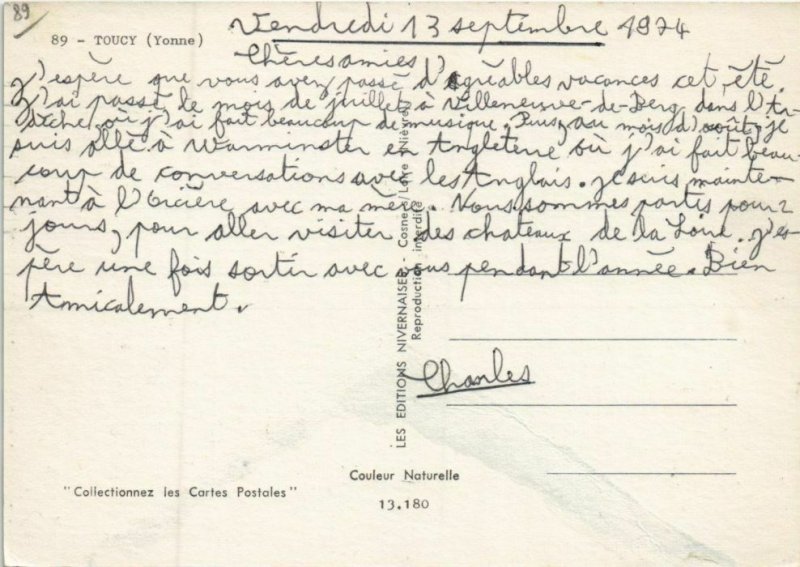 89
Vendredi 13 septembre 1974
89 - TOUCY (Yonne)
Chères amies,
J'espère que vous avez passé d'agréables vacances cet été.
J'ai passé le mois de juillet à Villeneuve-de-Berg dans l'Ar-
dèche, où j'ai fait beaucoup de musique. Puis, au mois d'août, je
suis allé à Warminster en Angleterre où j'ai fait beau-
coup de conversations avec les Anglais. Je suis mainte-
nant à l'Orcière avec ma mère. Nous sommes partis pour 2
jours, pour aller visiter des chateaux de la Loire. J'es-
père une fois sortir avec vous pendant l'année. Bien
Amicalement.
Charles
LES EDITIONS NIVERNAISES - Cosne s/Loire (Nièvre)
Reproduction interdite
Couleur Naturelle
"Collectionnez les Cartes Postales"
13.180